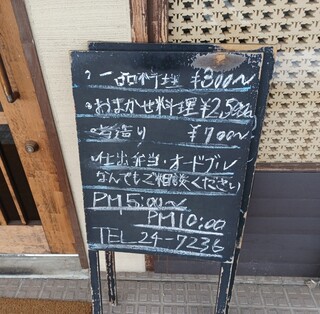 ・一品料理 ¥800〜
・おまかせ料理 ¥2,500〜
・舟造り ¥700〜
・仕出弁当・オードブル
なんでもご相談ください
PM5:00〜
PM10:00
TEL 24-7236